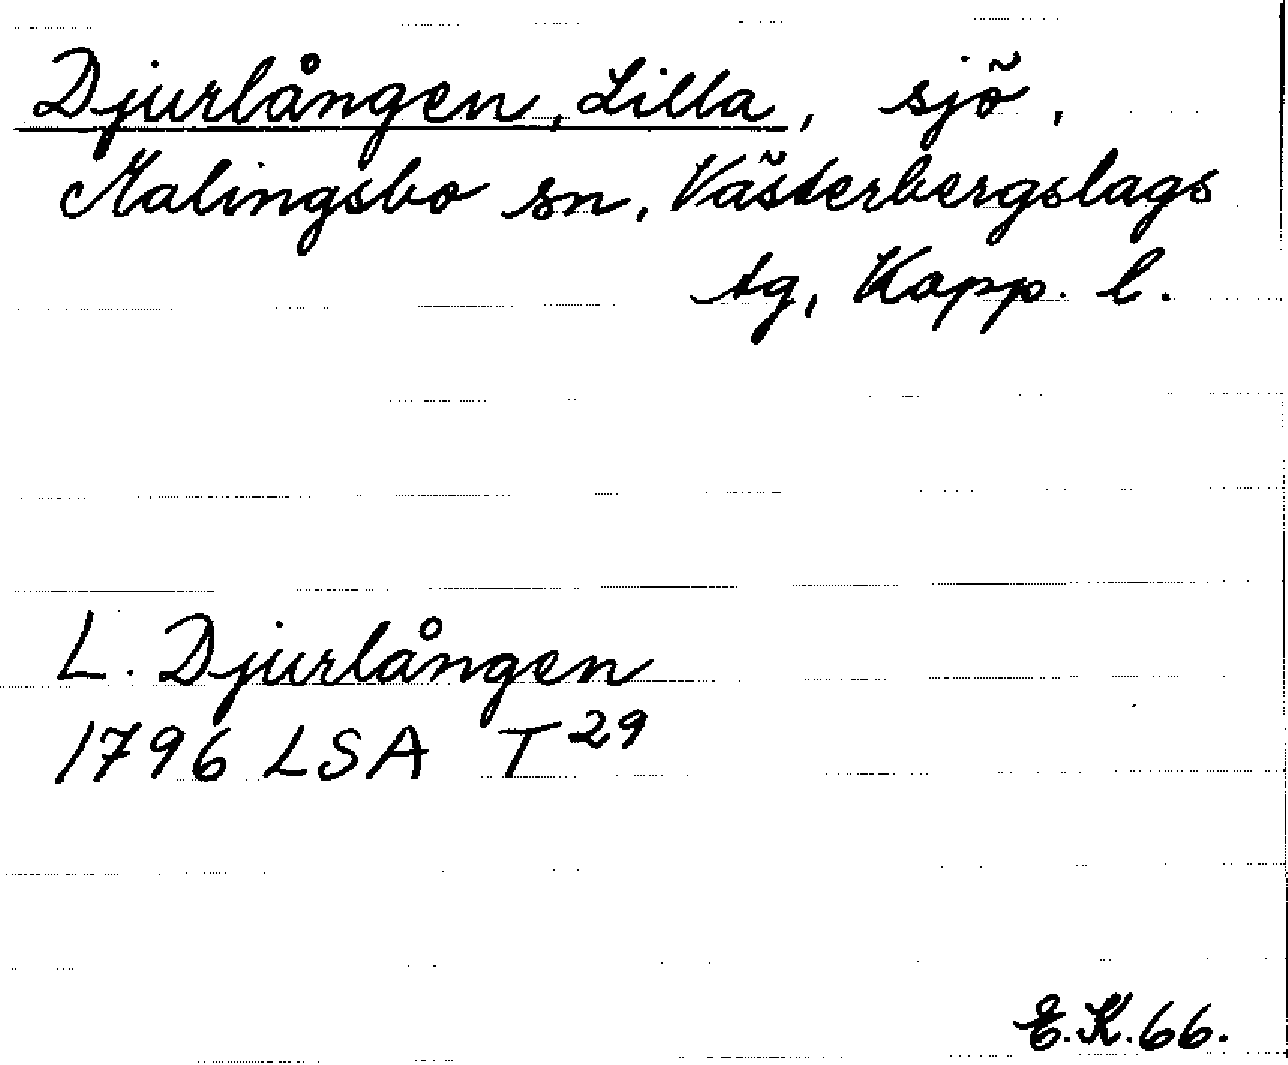 Djurlången, Lilla, sjö,
Malingsbo sn, Västerbergslags
tg, Kopp. l.
L. Djurlången
1796 LSA T 29
E.K.66.